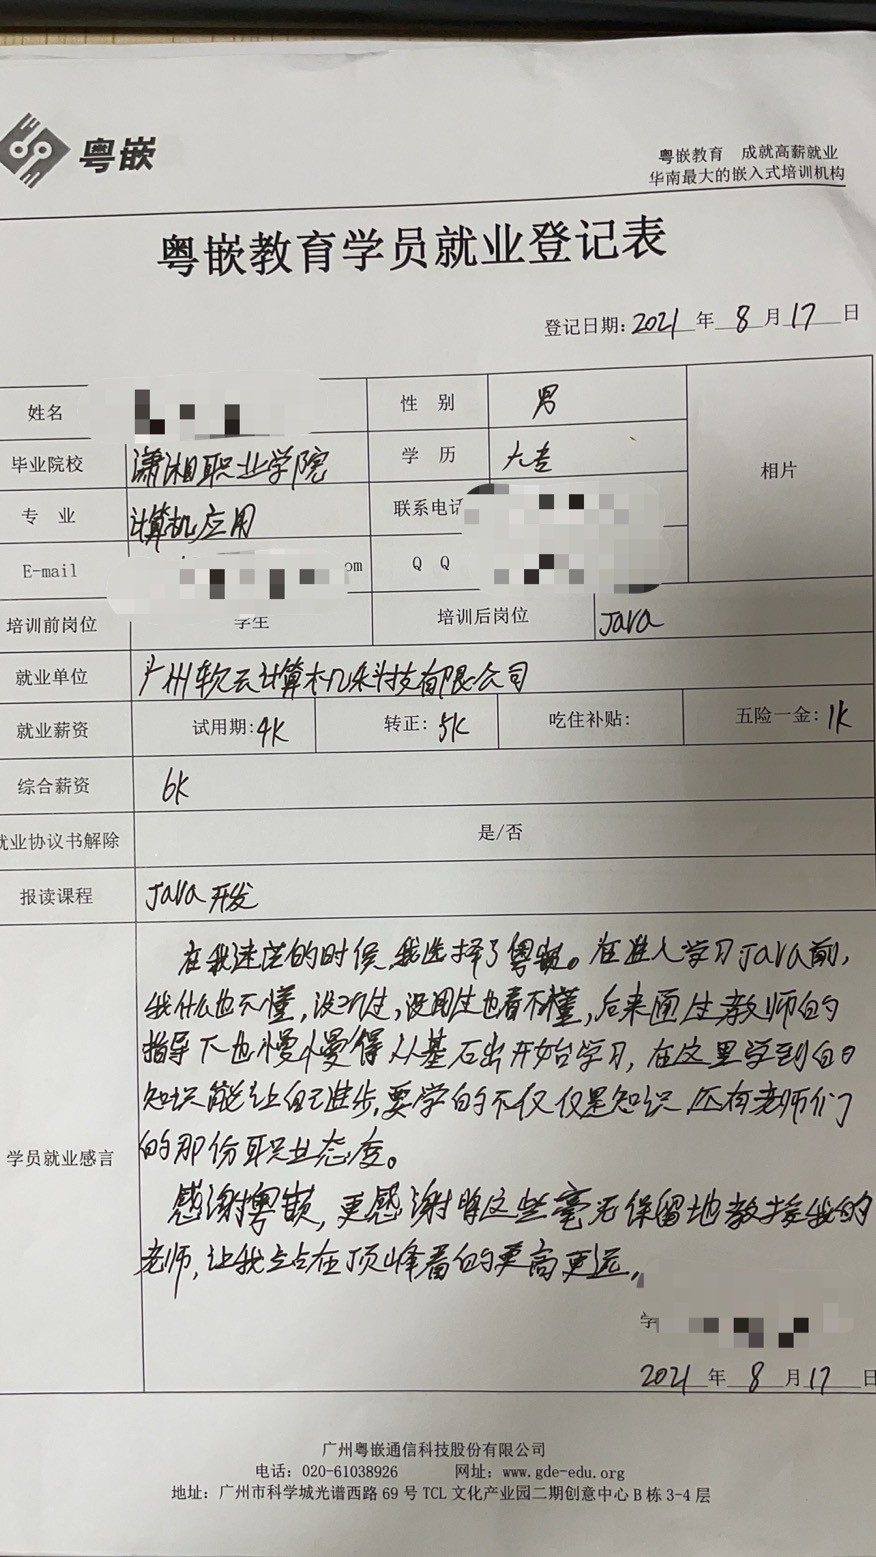 粤嵌
粤嵌教育 成就高薪就业
华南最大的嵌入式培训机构
粤嵌教育学员就业登记表
登记日期: 2021 年 8 月 17 日
姓名 性 别 男
毕业院校 潇湘职业学院 学 历 大专 相片
专 业 计算机应用 联系电话
E-mail om Q Q
培训前岗位 学生 培训后岗位 Java
就业单位 广州软云计算机科技有限公司
就业薪资 试用期: 4K 转正: 5K 吃住补贴: 五险一金: 1K
综合薪资 6K
就业协议书解除 是/否
报读课程 Java 开发
学员就业感言
在我迷茫的时候,我选择了粤嵌。在进入学习Java前,
我什么也不懂,没 过,没 过也看不懂,后来通过教师的
指导下也慢慢得从基础开始学习,在这里学到的
知识能让自己进步,要学的不仅仅是知识 还有老师们
的那份职业态度。
感谢粤嵌,更感谢 这些毫无保留地教授我的
老师,让我站在顶峰看的更高更远。
学
2021 年 8 月 17 日
广州粤嵌通信科技股份有限公司
电话: 020-61038926 网址: www.gde-edu.org
地址: 广州市科学城光谱西路 69 号 TCL 文化产业园二期创意中心 B 栋 3-4 层